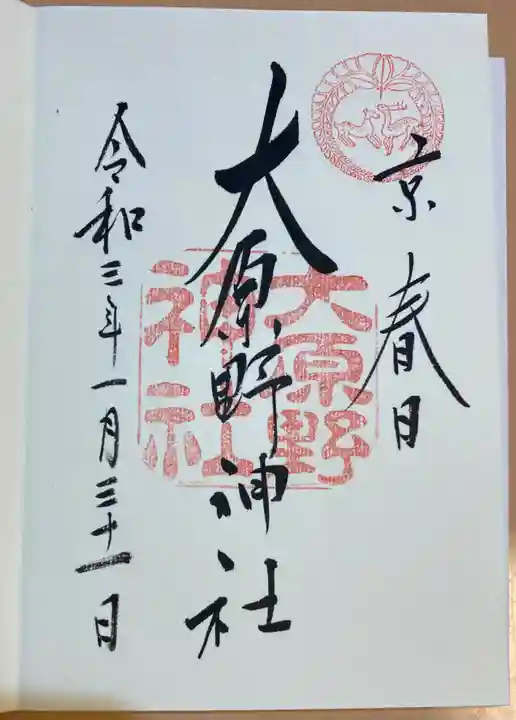 京春日
大原野神社
大原野
神社
令和三年一月三十一日